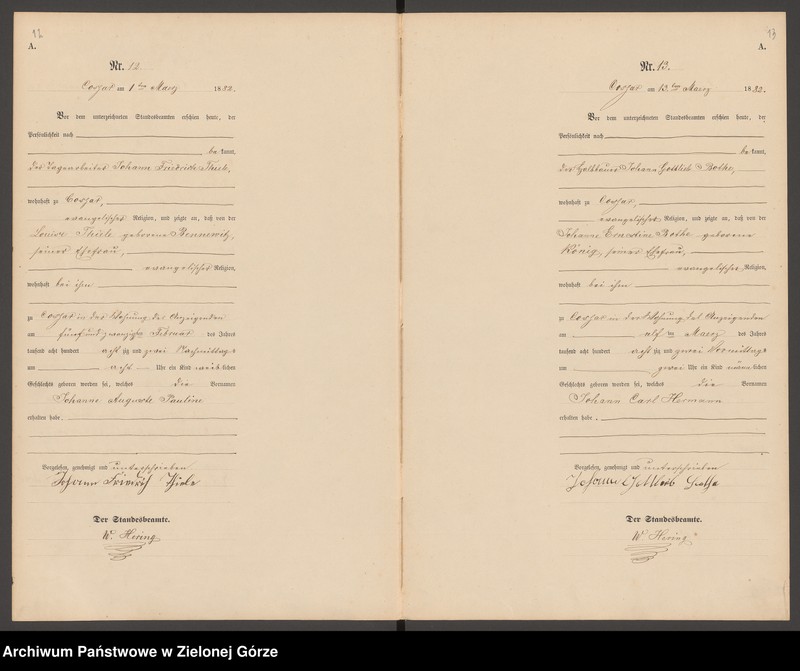 12
A.
Nr. 12
Cossar am 1ten Maerz 1882.
Vor dem unterzeichneten Standesbeamten erschien heute, der
Persönlichkeit nach
bekannt,
der Tagearbeiter Johann Friedrich Thiele,
wohnhaft zu Cossar,
evangelischer Religion, und zeigte an, daß von der
Louise Thiele geborene Bennewitz,
seiner Ehefrau,
evangelischer Religion,
wohnhaft bei ihm
zu Cossar in der Wohnung des Anzeigenden
am fünf und zwanzigsten Februar des Jahres
tausend acht hundert acht zig und zwei Nachmittags
um acht Uhr ein Kind weiblichen
Geschlechts geboren worden sei, welches die Vornamen
Johanne Auguste Pauline
erhalten habe.
Vorgelesen, genehmigt und unterschrieben
Johann Friedrich Thiele
Der Standesbeamte.
W. Hering
13
A.
Nr. 13.
Cossar am 13ten Maerz 1882.
Vor dem unterzeichneten Standesbeamten erschien heute, der
Persönlichkeit nach
bekannt,
der Halbbauer Johann Gottlieb Bothe,
wohnhaft zu Cossar,
evangelischer Religion, und zeigte an, daß von der
Johanne Ernestine Bothe geborene
König, seiner Ehefrau,
evangelischer Religion,
wohnhaft bei ihm
zu Cossar in der Wohnung des Anzeigenden
am elften Maerz des Jahres
tausend acht hundert acht zig und zwei Vormittags
um zwei Uhr ein Kind männlichen
Geschlechts geboren worden sei, welches die Vornamen
Johann Carl Hermann
erhalten habe.
Vorgelesen, genehmigt und unterschrieben
Johann Gottlieb Bothe
Der Standesbeamte.
W Hering
Archiwum Państwowe w Zielonej Górze